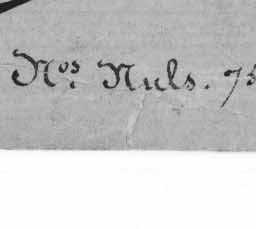 Nos. Nuls. 75